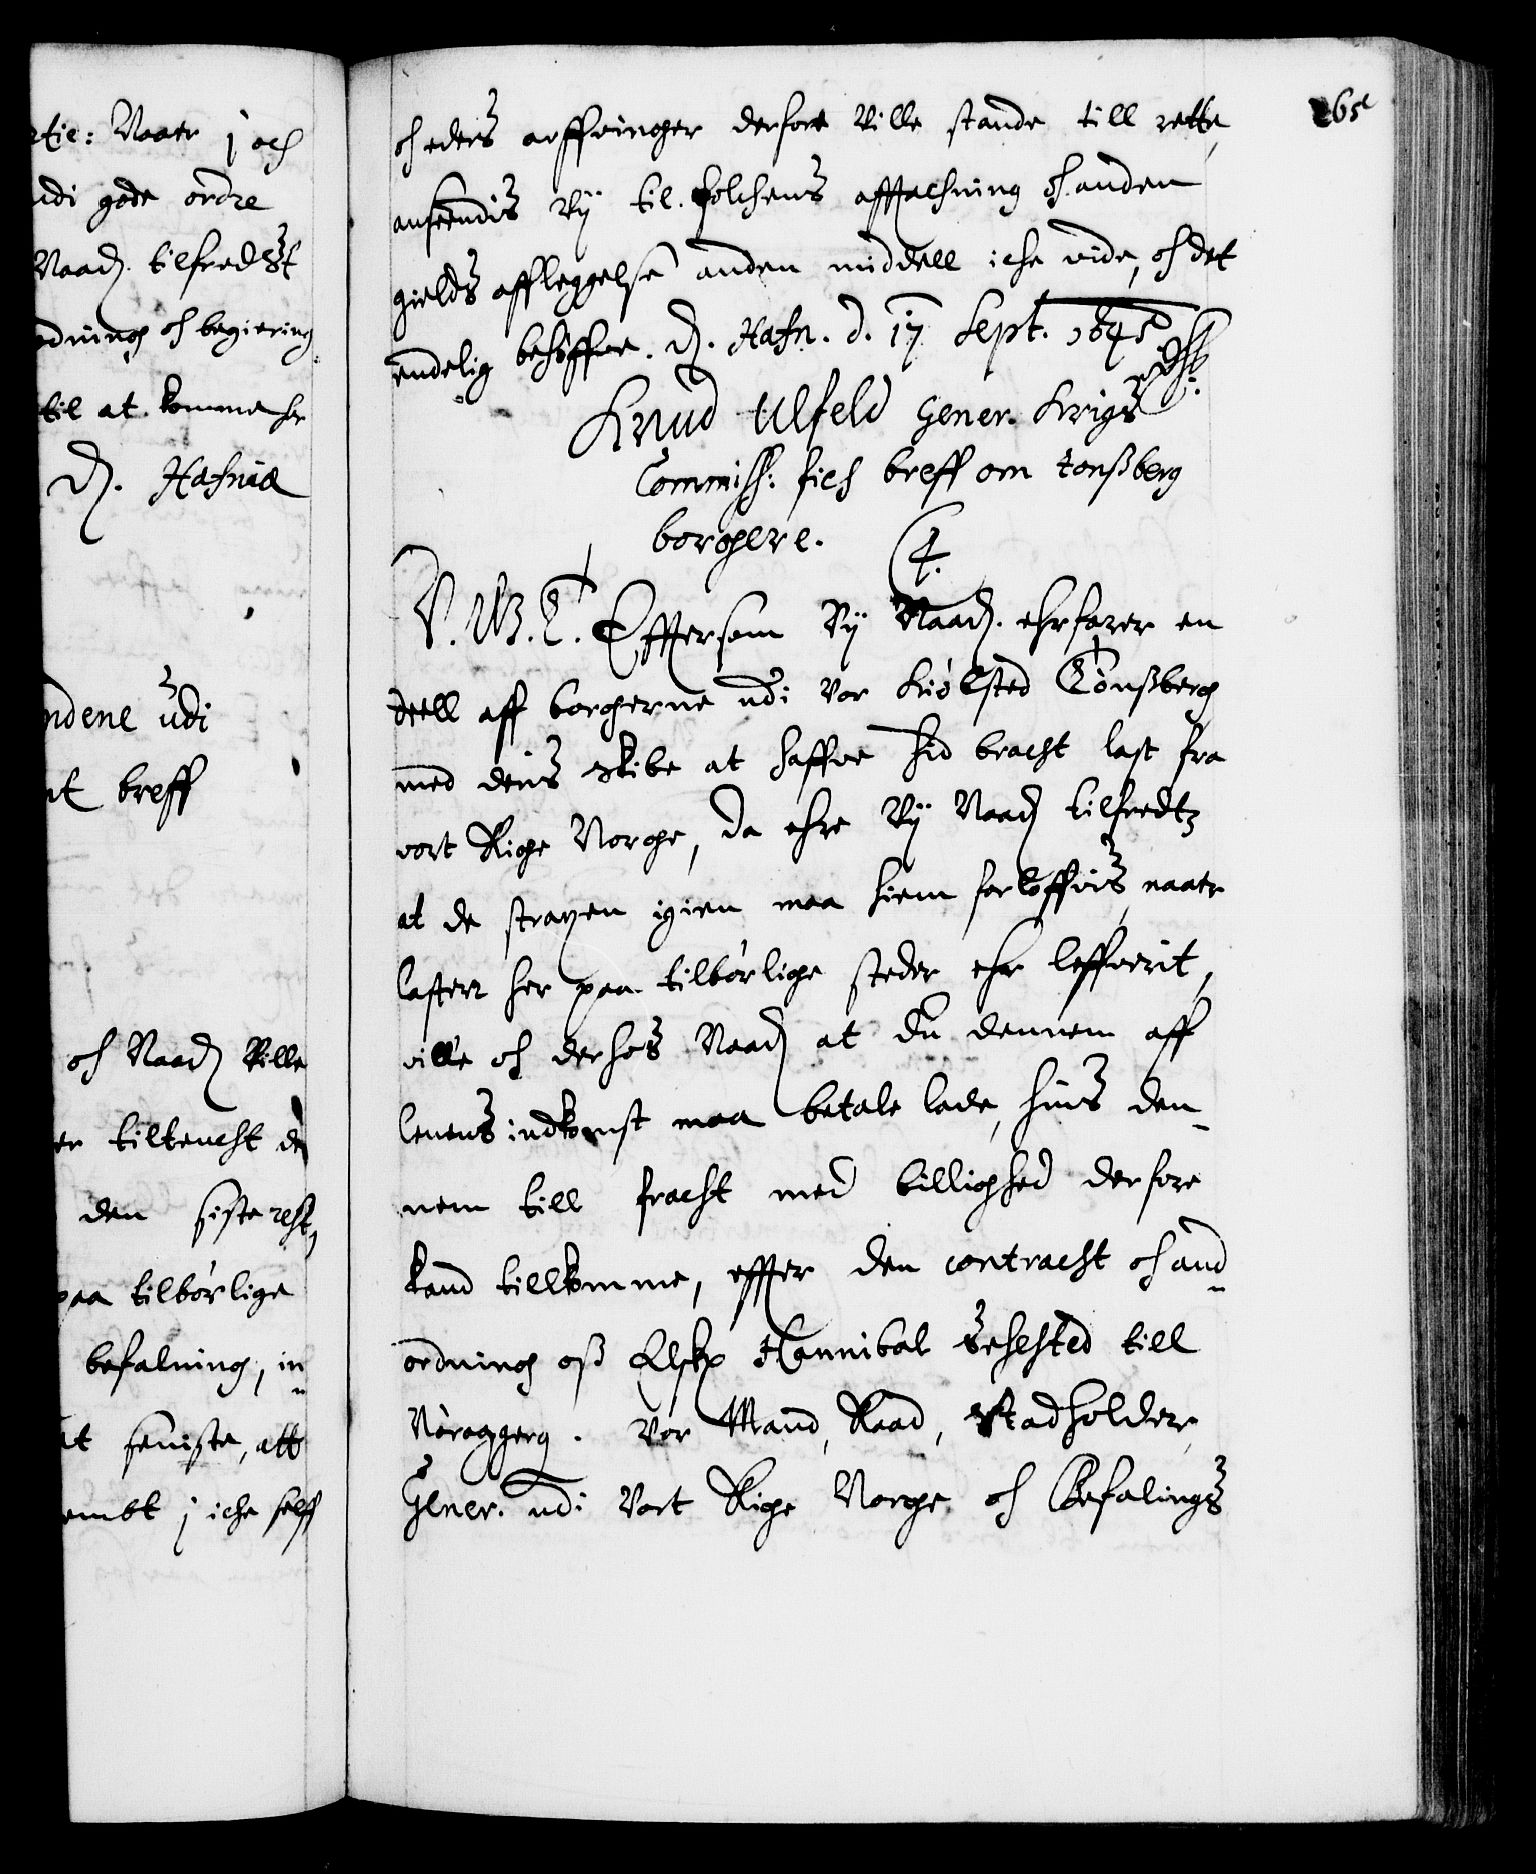 rtie: Naar j och
udi gode ordre
Naad. tilfredst
dning och begiering
til at komme her
D. Hafniæ
ndene udi
nt breff
och Naad Ville
er tiltencht de
den siste rest,
paa tilbørlige
befalning, in-
it seniste, att
embt j iche self
265
och eders arffvinger derfore Ville stande till rette,
anseendis Vy til folchens afftachning och anden
gields affleggelse anden middell iche vide, och det
endelig behøffve. D. Hafn. d. 17 Sept. 1645
Knud Ulfeld Gener. Krigs
Commiss: fich breff om tonsberg
borgere.
V.G.T. Effterson Vy Naad. ehrfarer en
deell aff borgerne udi vor Kiøbsted Tonsberg
med deris skibe at haffve hid bracht last fra
vort Rige Norge, da ehre Vy Naad tilfredtz
at de straxen igien maa hiem forløffvis, naar
lasten her paa tilbørlige steder ehr leffverit,
ville och derhos Naad at du dennem aff
lenens indkomst maa betale lade, huis den-
nem till fracht med billighed derfore
kand tillkomme, effter den contracht och and-
ordning oss Elskl Hannibal Sehested till
Nøraggerg. Vor Mand, Raad, Stadholder,
Gener. udi Vort Rige Norge och Befalings